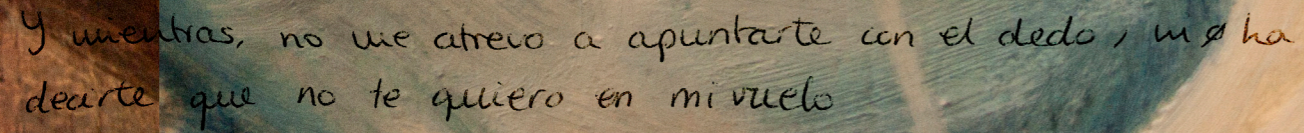 Y mientras, no me atrevo a apuntarte con el dedo, ha
decirte que no te quiero en mi vuelo